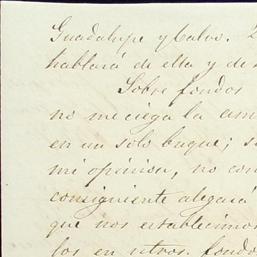 Guadalupe y Calvo.
hablará de ella y de
Sobre fondos
no me ciega la am
en un solo buque; s
mi opinión, no con
consiguiente alegará
que nos establecimos
los en ntros. fondo